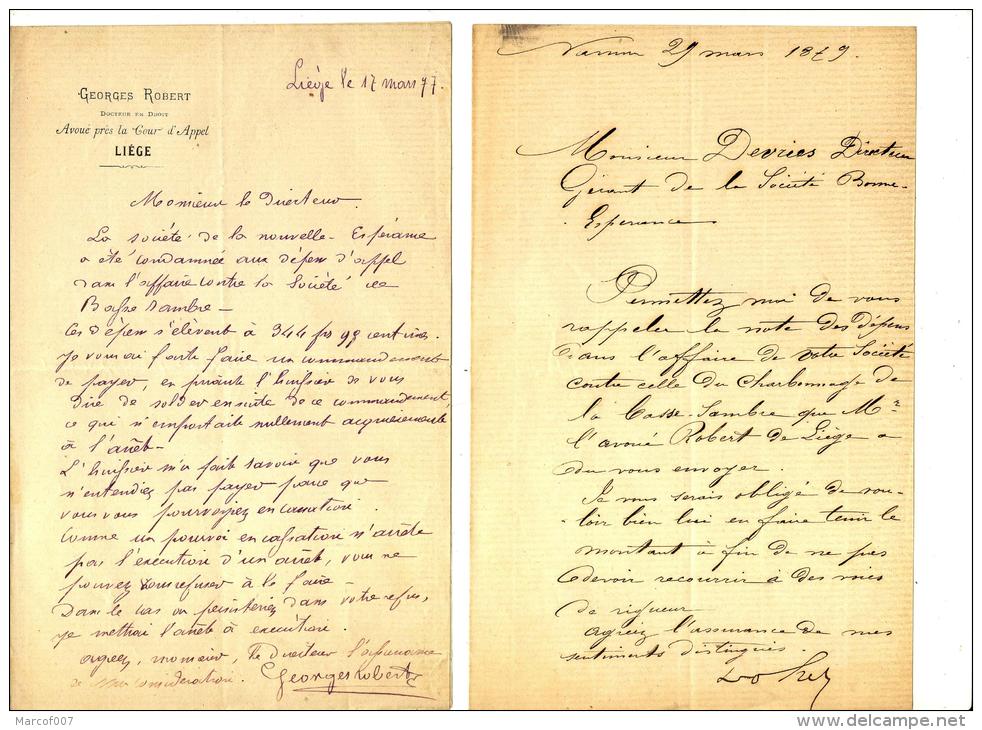 GEORGES ROBERT
DOCTEUR EN DROIT
Avoué près la Cour d'Appel
LIÉGE
Liège le 17 mars 77.
Monsieur le Directeur
La société de la nouvelle-Espérance
a été condamnée aux dépens d'appel
dans l'affaire contre la Société de
Basse Sambre -
Ces dépens s'élèvent à 344 frs 99 centimes
Je vous ai fait faire un commandement
de payer, en priant l'huissier de vous
dire de solder ensuite de ce commandement,
ce qui n'emportait nullement acquiescement
à l'arrêt -
L'huissier m'a fait savoir que vous
n'entendiez pas payer parce que
vous vous pourvoyiez en cassation.
Comme un pourvoi en cassation n'arrête
pas l'exécution d'un arrêt, vous ne
pouvez vous refuser à le faire -
Dans le cas où persisteriez dans votre refus,
je mettrai l'arrêt à exécution.
Agréez, monsieur, le Directeur l'assurance
de ma considération. Georges Robert
Namur 29 mars 1879.
Monsieur Devries Directeur
Gérant de la Société Bonne-
Espérance
Permettez moi de vous
rappeler la note des dépens
dans l'affaire de votre Société
contre celle du Charbonnage de
la Basse-Sambre que Mr
l'avoué Robert de Liège a
du vous envoyer.
Je vous serais obligé de vou-
loir bien lui en faire tenir le
montant à fin de ne pas
devoir recourrir à des voies
de rigueur
Agréez l'assurance de mes
sentiments distingués.
Marcof007
www.delcampe.net